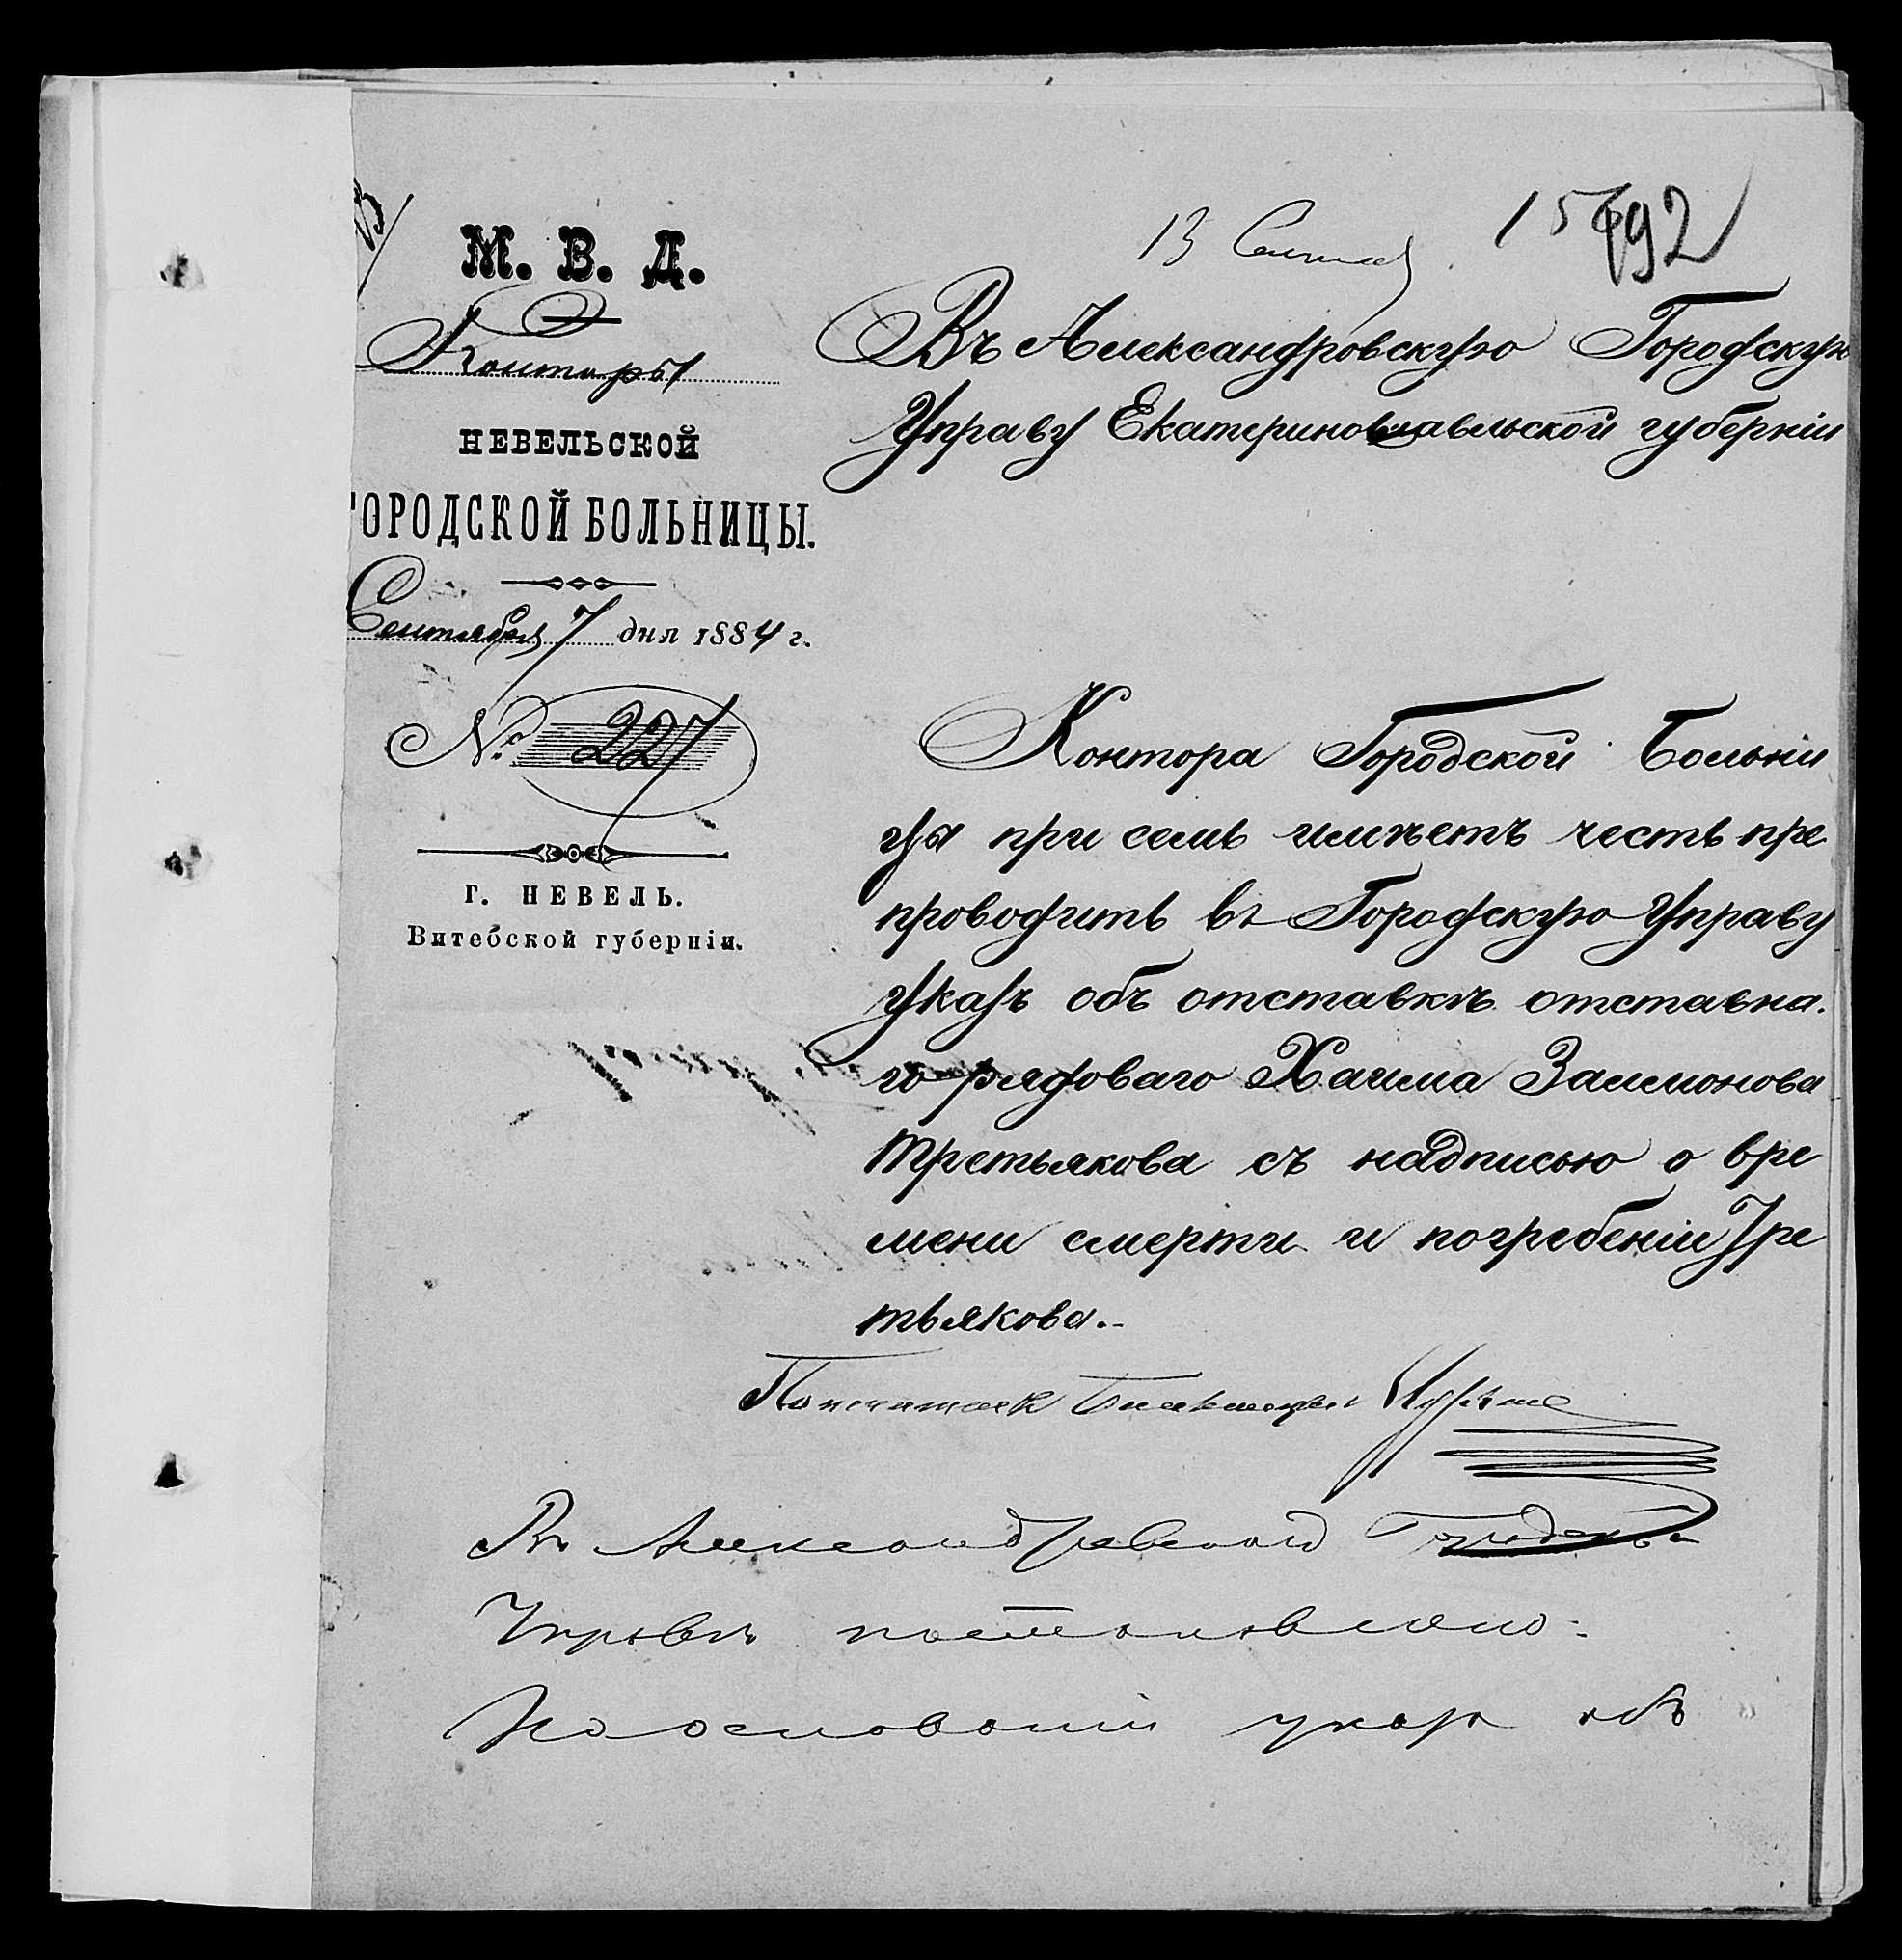 М. В. Д.
Конторы
НЕВЕЛЬСКОЙ
ГОРОДСКОЙ БОЛЬНИЦЫ.
Сентября 7 дня 1884 г.
№ 227
Г. НЕВЕЛЬ.
Витебской губерніи.
13 Сентяб. 15 192
Въ Александровскую Городскую
Управу Екатеринославльской губерніи
Контора Городской Больни
цы при семъ имѣетъ честь пре
проводить въ Городскую Управу
указъ объ отставкѣ отставна.
го рядоваго Хаима Залмонова
Третьякова съ надписью о вре
мени смерти и погребеніи Тре
тьякова.
Попечитель Больницы
Въ Александровской Городской
Управѣ постановлено:
На основаніи указа объ